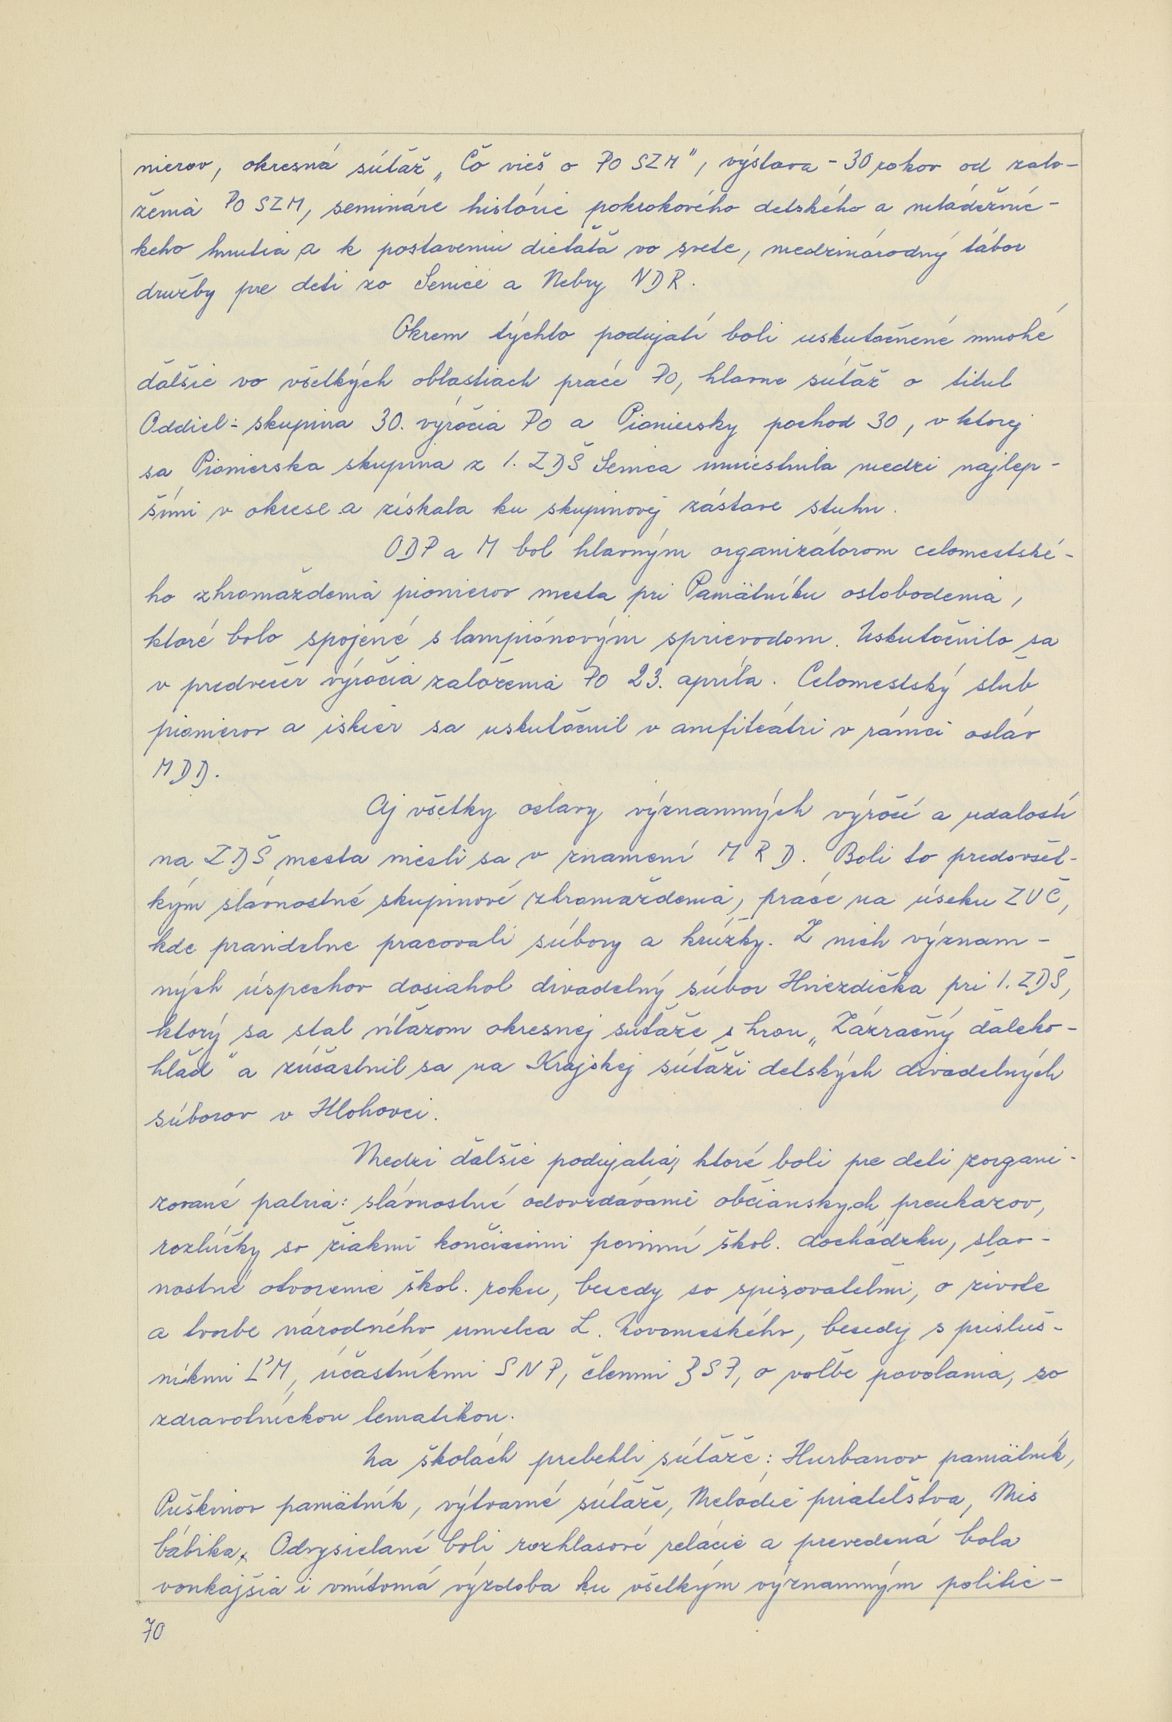 nierov, okresná súťaž „Čo vieš o PO SZM", výstava - 30 rokov od zalo-
ženia PO SZM, semináre histórie pokrokového detského a mládežníc-
keho hnutia a k postaveniu dieťaťa vo svete, medzinárodný tábor
družby pre deti zo Senice a Nebry NDR.
Okrem týchto podujatí boli uskutočnené mnohé
ďalšie vo všetkých oblastiach práce PO, hlavne súťaž o titul
Oddiel - skupina 30. výročia PO a Pioniersky pochod 30, v ktorej
sa Pionierska skupina z 1. ZDŠ Senica umiestnila medzi najlep-
šími v okrese a získala ku skupinovej zástave stuhu.
ODP a M bol hlavným organizátorom celomestské-
ho zhromaždenia pionierov mesta pri Pamätníku oslobodenia,
ktoré bolo spojené s lampiónovým sprievodom. Uskutočnilo sa
v predvečer výročia založenia PO 23. apríla. Celomestský sľub
pionierov a iskier sa uskutočnil v amfiteátri v rámci osláv
MDD.
Aj všetky oslavy významných výročí a udalostí
na ZDŠ mesta niesli sa v znamení MRD. Boli to predovšet-
kým slávnostné skupinové zhromaždenia, práce na úseku ZUČ,
kde pravidelne pracovali súbory a krúžky. Z nich význam-
ných úspechov dosiahol divadelný súbor Hviezdička pri 1. ZDŠ,
ktorý sa stal víťazom okresnej súťaže s hrou „Zázračný ďaleko-
hľad" a zúčastnil sa na Krajskej súťaži detských divadelných
súborov v Hlohovci.
Medzi ďalšie podujatia, ktoré boli pre deti zorgani-
zované patria: slávnostné odovzdávanie občianskych preukazov,
rozlúčky so žiakmi končiacimi povinnú škol. dochádzku, sláv-
nostné otvorenie škol. roku, besedy so spisovateľmi, o živote
a tvorbe národného umelca L. Novomeského, besedy s prísluš-
níkmi ĽM, účastníkmi SNP, členmi ZSF, o voľbe povolania, so
zdravotníckou tematikou.
Na školách prebehli súťaže: Hurbanov pamätník,
Puškinov pamätník, výtvarné súťaže, Melódie priateľstva, Mis
bábika. Odvysielané boli rozhlasové relácie a prevedená bola
vonkajšia i vnútorná výzdoba ku všetkým významným politic-
70